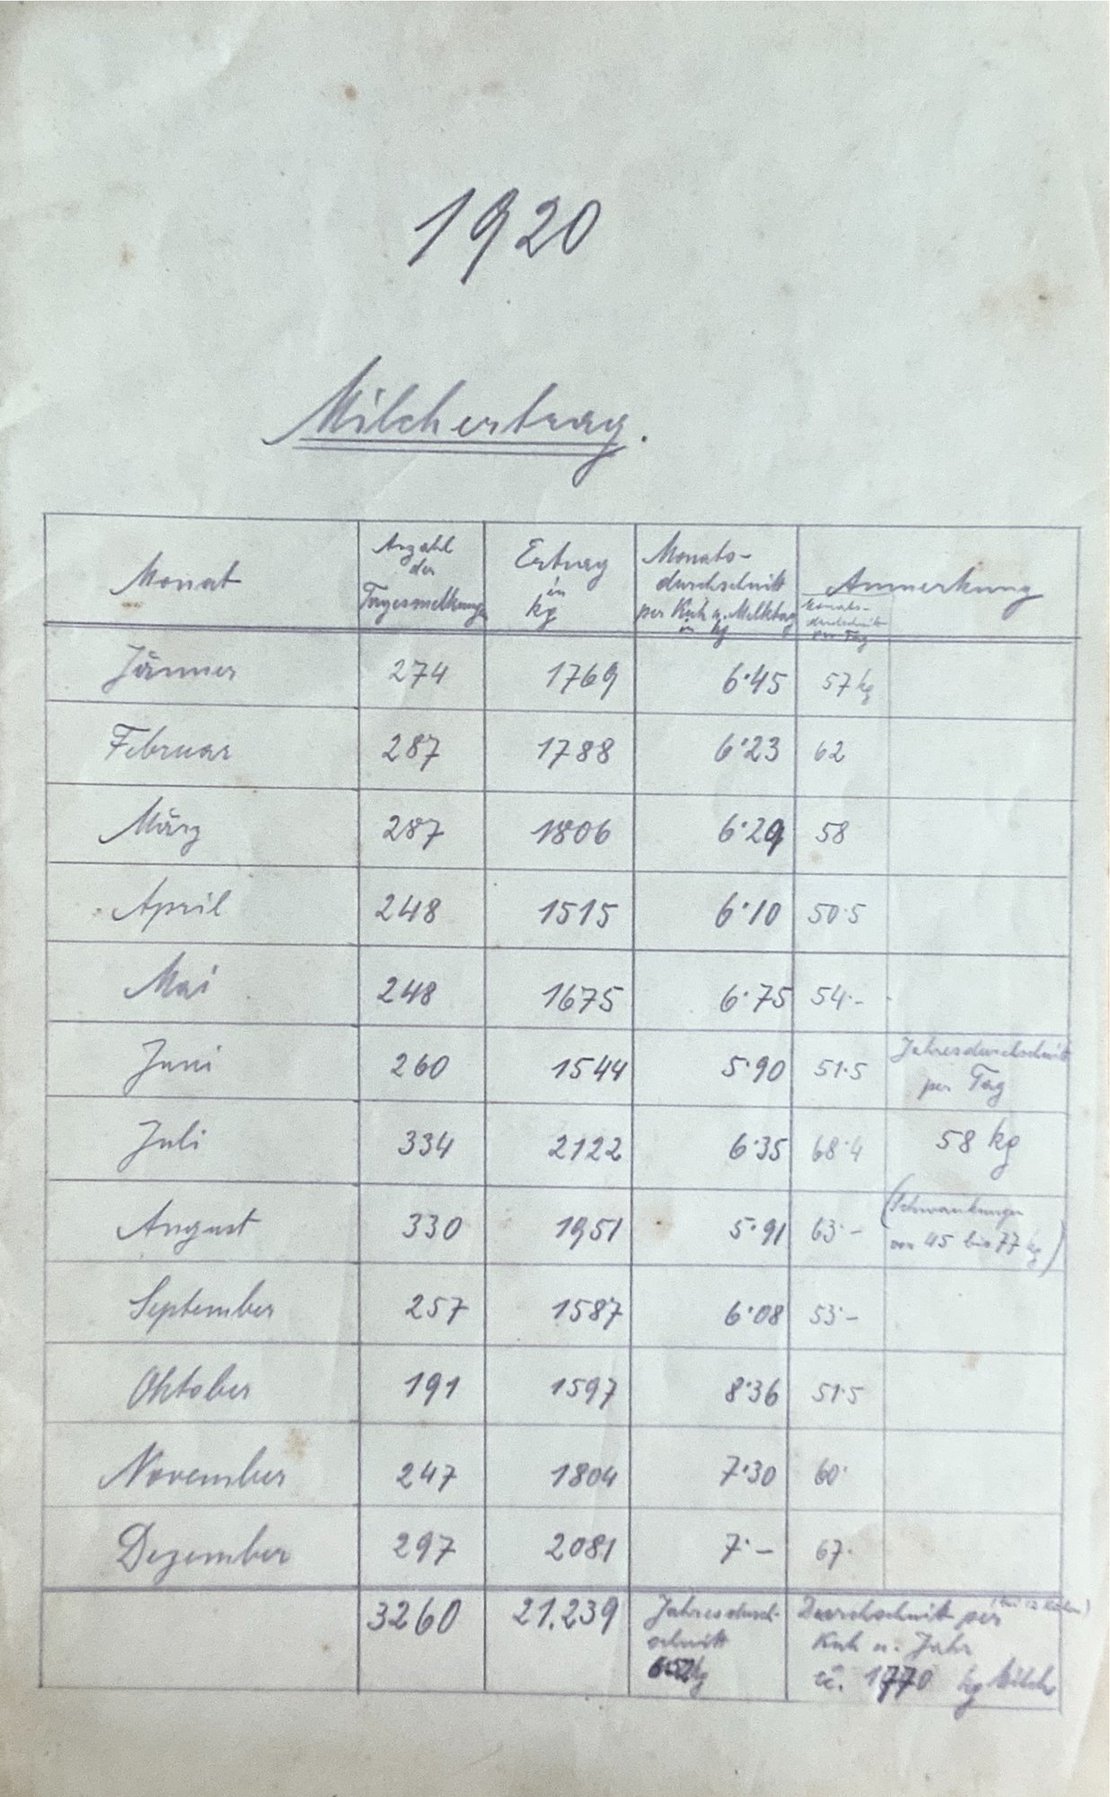 1920
Milchertrag.
Monat
Anzahl
der
Tagesmelkungen
Ertrag
in
kg
Monats-
durchschnitt
per Kuh u. Melktag
in kg
Anmerkung
Monats-
durchschnitt
per Tag
Jänner 274 1769 6·45 57 kg
Februar 287 1788 6·23 62
März 287 1806 6·29 58
April 248 1515 6·10 50·5
Mai 248 1675 6·75 54·-
Juni 260 1544 5·90 51·5
Jahresdurchschnitt
per Tag
Juli 334 2122 6·35 68·4 58 kg
August 330 1951 5·91 63·-
(Schwankungen
von 45 bis 77 kg)
September 257 1587 6·08 53·-
Oktober 191 1597 8·36 51·5
November 247 1804 7·30 60·
Dezember 297 2081 7·- 67·
3260 21.239
Jahresdurch-
schnitt
6·52 kg
Durchschnitt per (bei 12 Kühen)
Kuh u. Jahr
1770 kg Milch